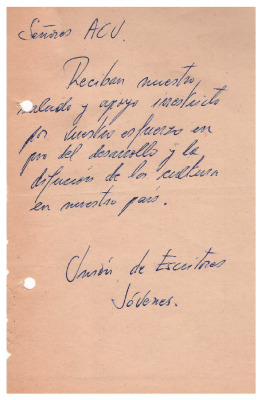 Señores ACU.
Reciban nuestro
saludo y apoyo irrestricto
por vuestro esfuerzo en
pro del desarrollo y la
difusión de la cultura
en nuestro país.
Unión de Escritores
Jóvenes.